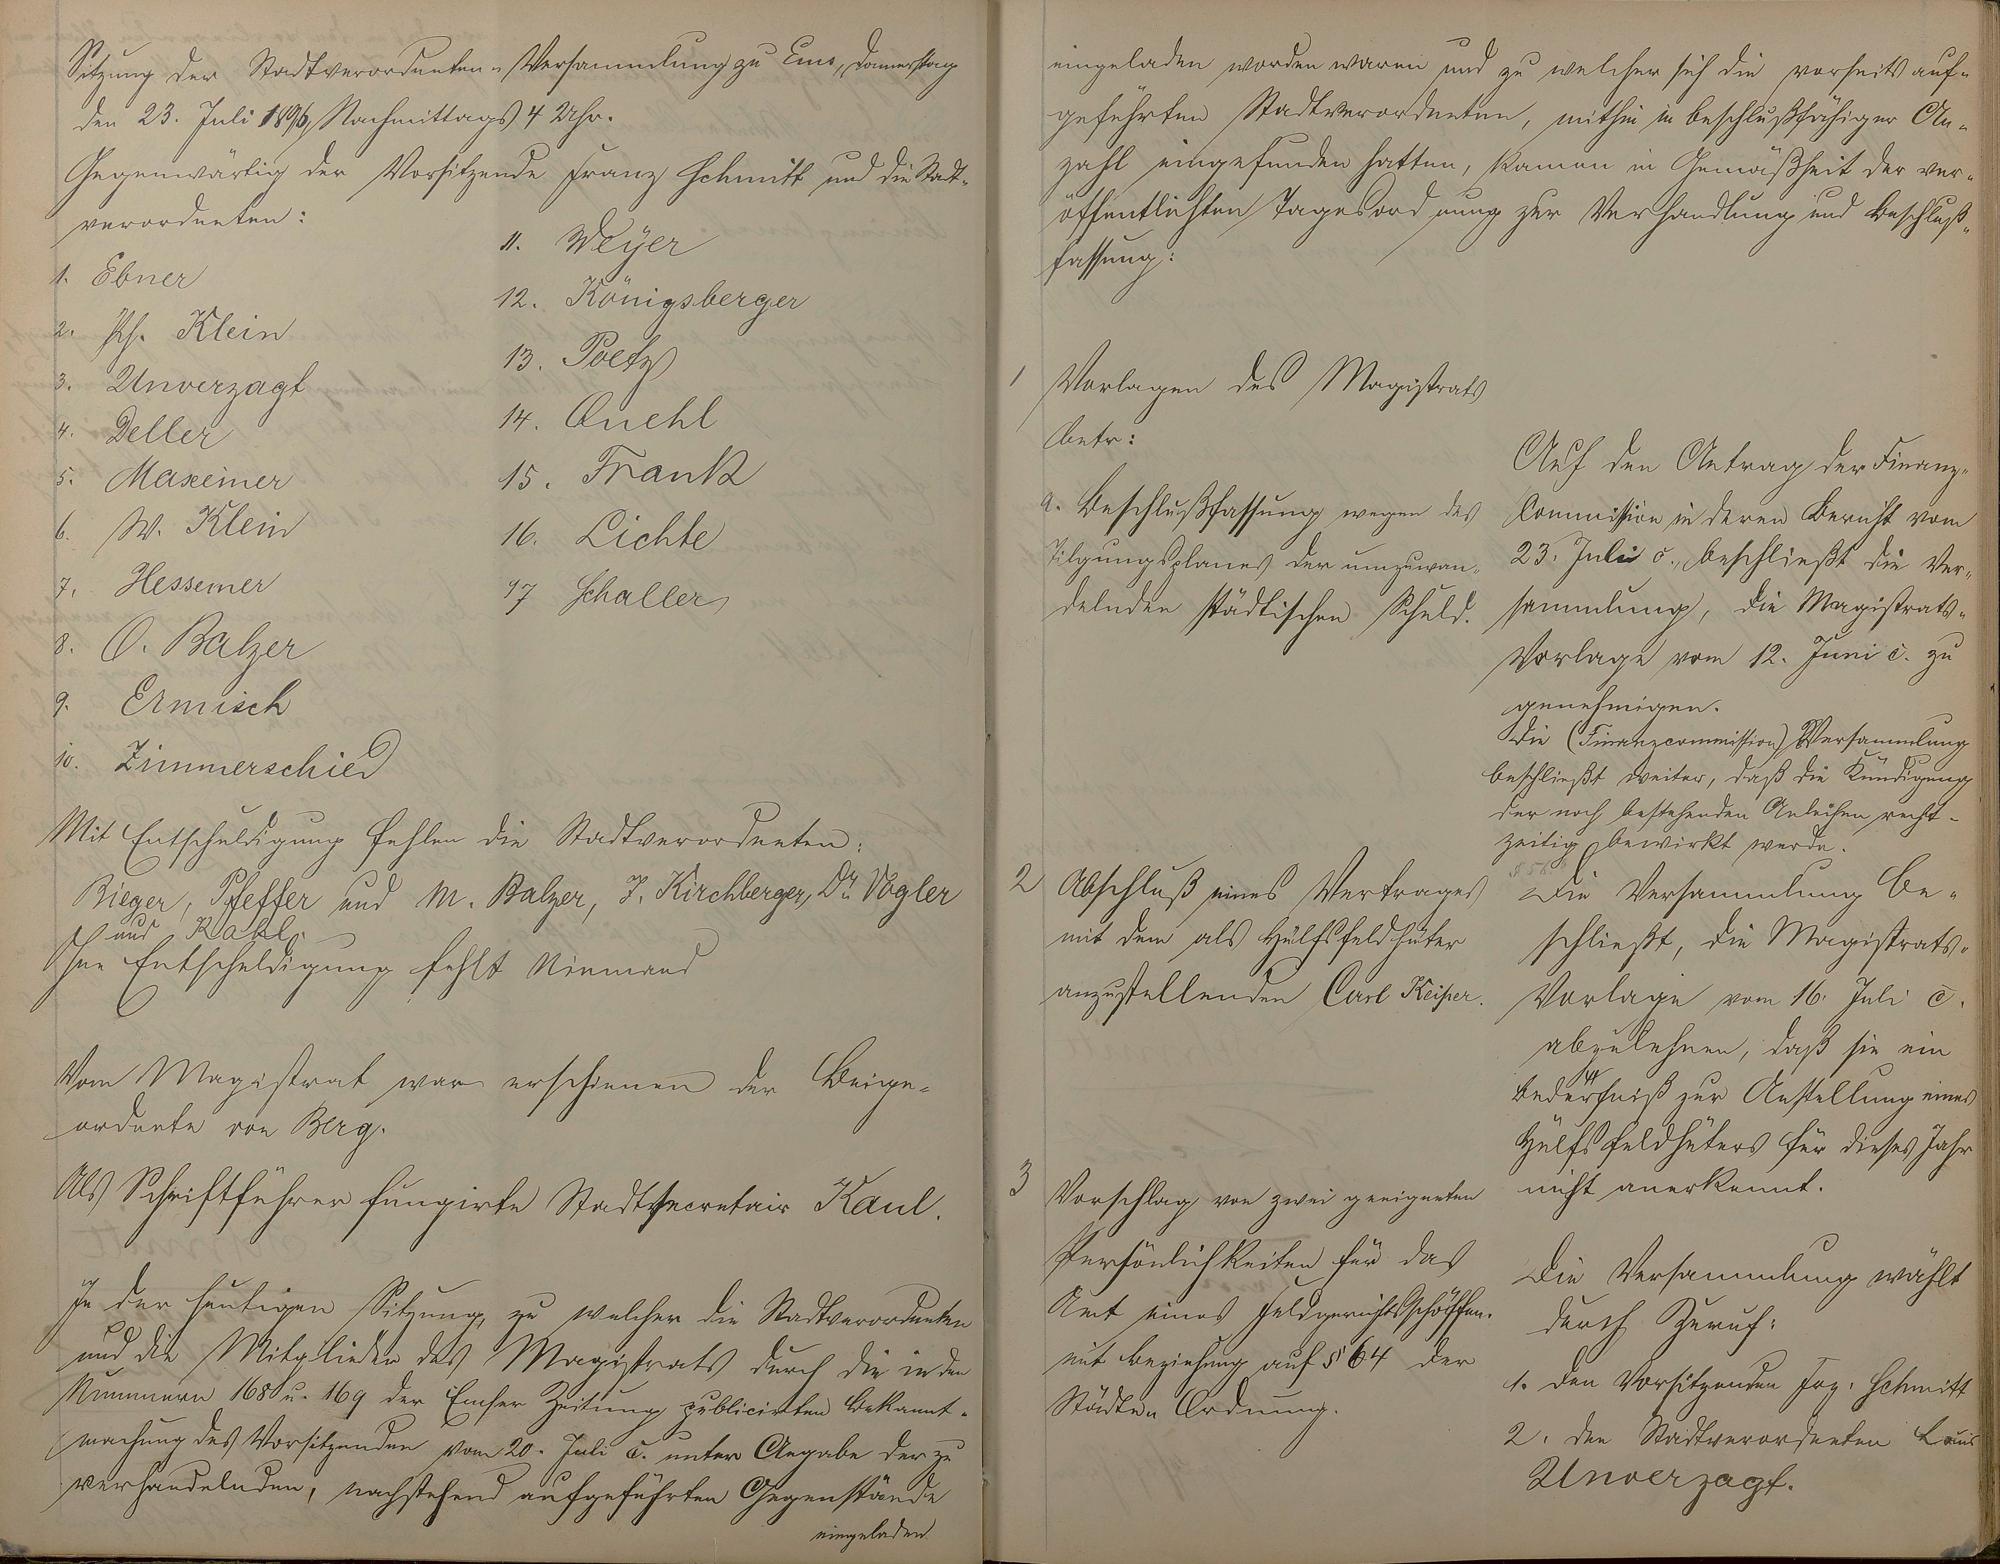 Sitzung der Stadtverordneten-Versammlung zu Ems, Donnerstag
den 23. Juli 1896, Nachmittags 4 Uhr.
Gegenwärtig der Vorsitzende Franz Schmitt und die Stadt-
verordneten:
1. Ebner
2. Ph. Klein
3. Unverzagt
4. Deller
5. Maxeiner
6. W. Klein
7. Hessemer
8. O. Balzer
9. Ermisch
10. Zimmerschied
11. Weyer
12. Königsberger
13. Poetz
14. Quehl
15. Frank
16. Lichte
17 Schaller
Mit Entschuldigung fehlen die Stadtverordneten:
Rieger, Pfeffer und M. Balzer, J. Kirchberger, Dr. Vogler
und Rahl.
Ohne Entschuldigung fehlt Niemand
Vom Magistrat war erschienen der Beige-
ordnete von Berg.
Als Schriftführer fungirte Stadtsecretair Kaul.
In der heutigen Sitzung, zu welcher die Stadtverordneten
und die Mitglieder des Magistrats durch die in den
Nummern 168 u. 169 der Emser Zeitung publicirten Bekannt-
machung des Vorsitzenden vom 20. Juli c. unter Angabe der zu
verhandelnden, nachstehend aufgeführten Gegenstände
eingeladen
eingeladen worden waren und zu welcher sich die vorseits auf-
geführten Stadtverordneten, mithin in beschlußfähiger An-
zahl eingefunden hatten, kamen in Gemäßheit der ver-
öffentlichten Tagesordnung zur Verhandlung und Beschluß-
fassung:
1 Vorlagen des Magistrats
betr:
a. Beschlußfassung wegen des
Tilgungsplanes der umzuwan-
delnden städtischen Schuld.
Auf den Antrag der Finanz-
Commission in deren Bericht vom
23. Juli c., beschließt die Ver-
sammlung, die Magistrats-
Vorlage vom 12. Juni c. zu
genehmigen.
Die (Finanzcommission) Versammlung
beschließt weiter, daß die Kündigung
der noch bestehenden Anleihen recht-
zeitig bewirkt werde.
2 Abschluß eines Vertrages
mit dem als Hülfsfeldhüter
anzustellenden Carl Keiper.
Die Versammlung be-
schließt, die Magistrats-
Vorlage vom 16. Juli c.
abzulehnen, daß sie ein
Bedürfniß zur Anstellung eines
Hülfsfeldhüters für dieses Jahr
nicht anerkennt.
3 Vorschlag von zwei geeigneten
Persönlichkeiten für das
Amt eines Feldgerichtsschöffen.
mit Beziehung auf § 64 der
Städte-Ordnung.
Die Versammlung wählt
durch Zuruf:
1. den Vorsitzenden Frz. Schmitt
2. den Stadtverordneten Louis
Unverzagt.